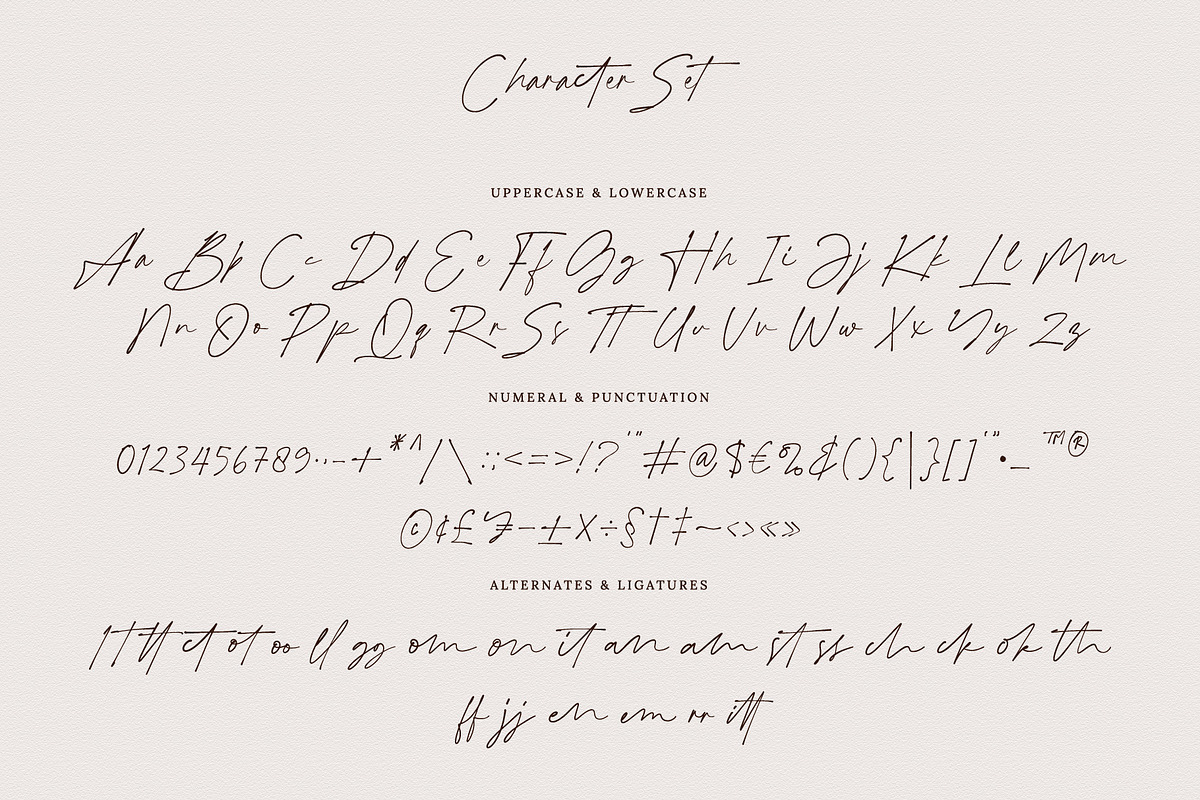 Character Set
UPPERCASE & LOWERCASE
Aa Bb Cc Dd Ee Ff Gg Hh Ii Jj Kk Ll Mm
Nn Oo Pp Qq Rr Ss Tt Uu Vv Ww Xx Yy Zz
NUMERAL & PUNCTUATION
0123456789.,-+*^/\:;<=>!?'"#@$€%&(){|}[]'"•_™®
©¢£¥–±×÷§†‡~‹›«»
ALTERNATES & LIGATURES
tt ct ot oo ll gg om on it an am st ss ch ck ok th
ff jj en em rr itt